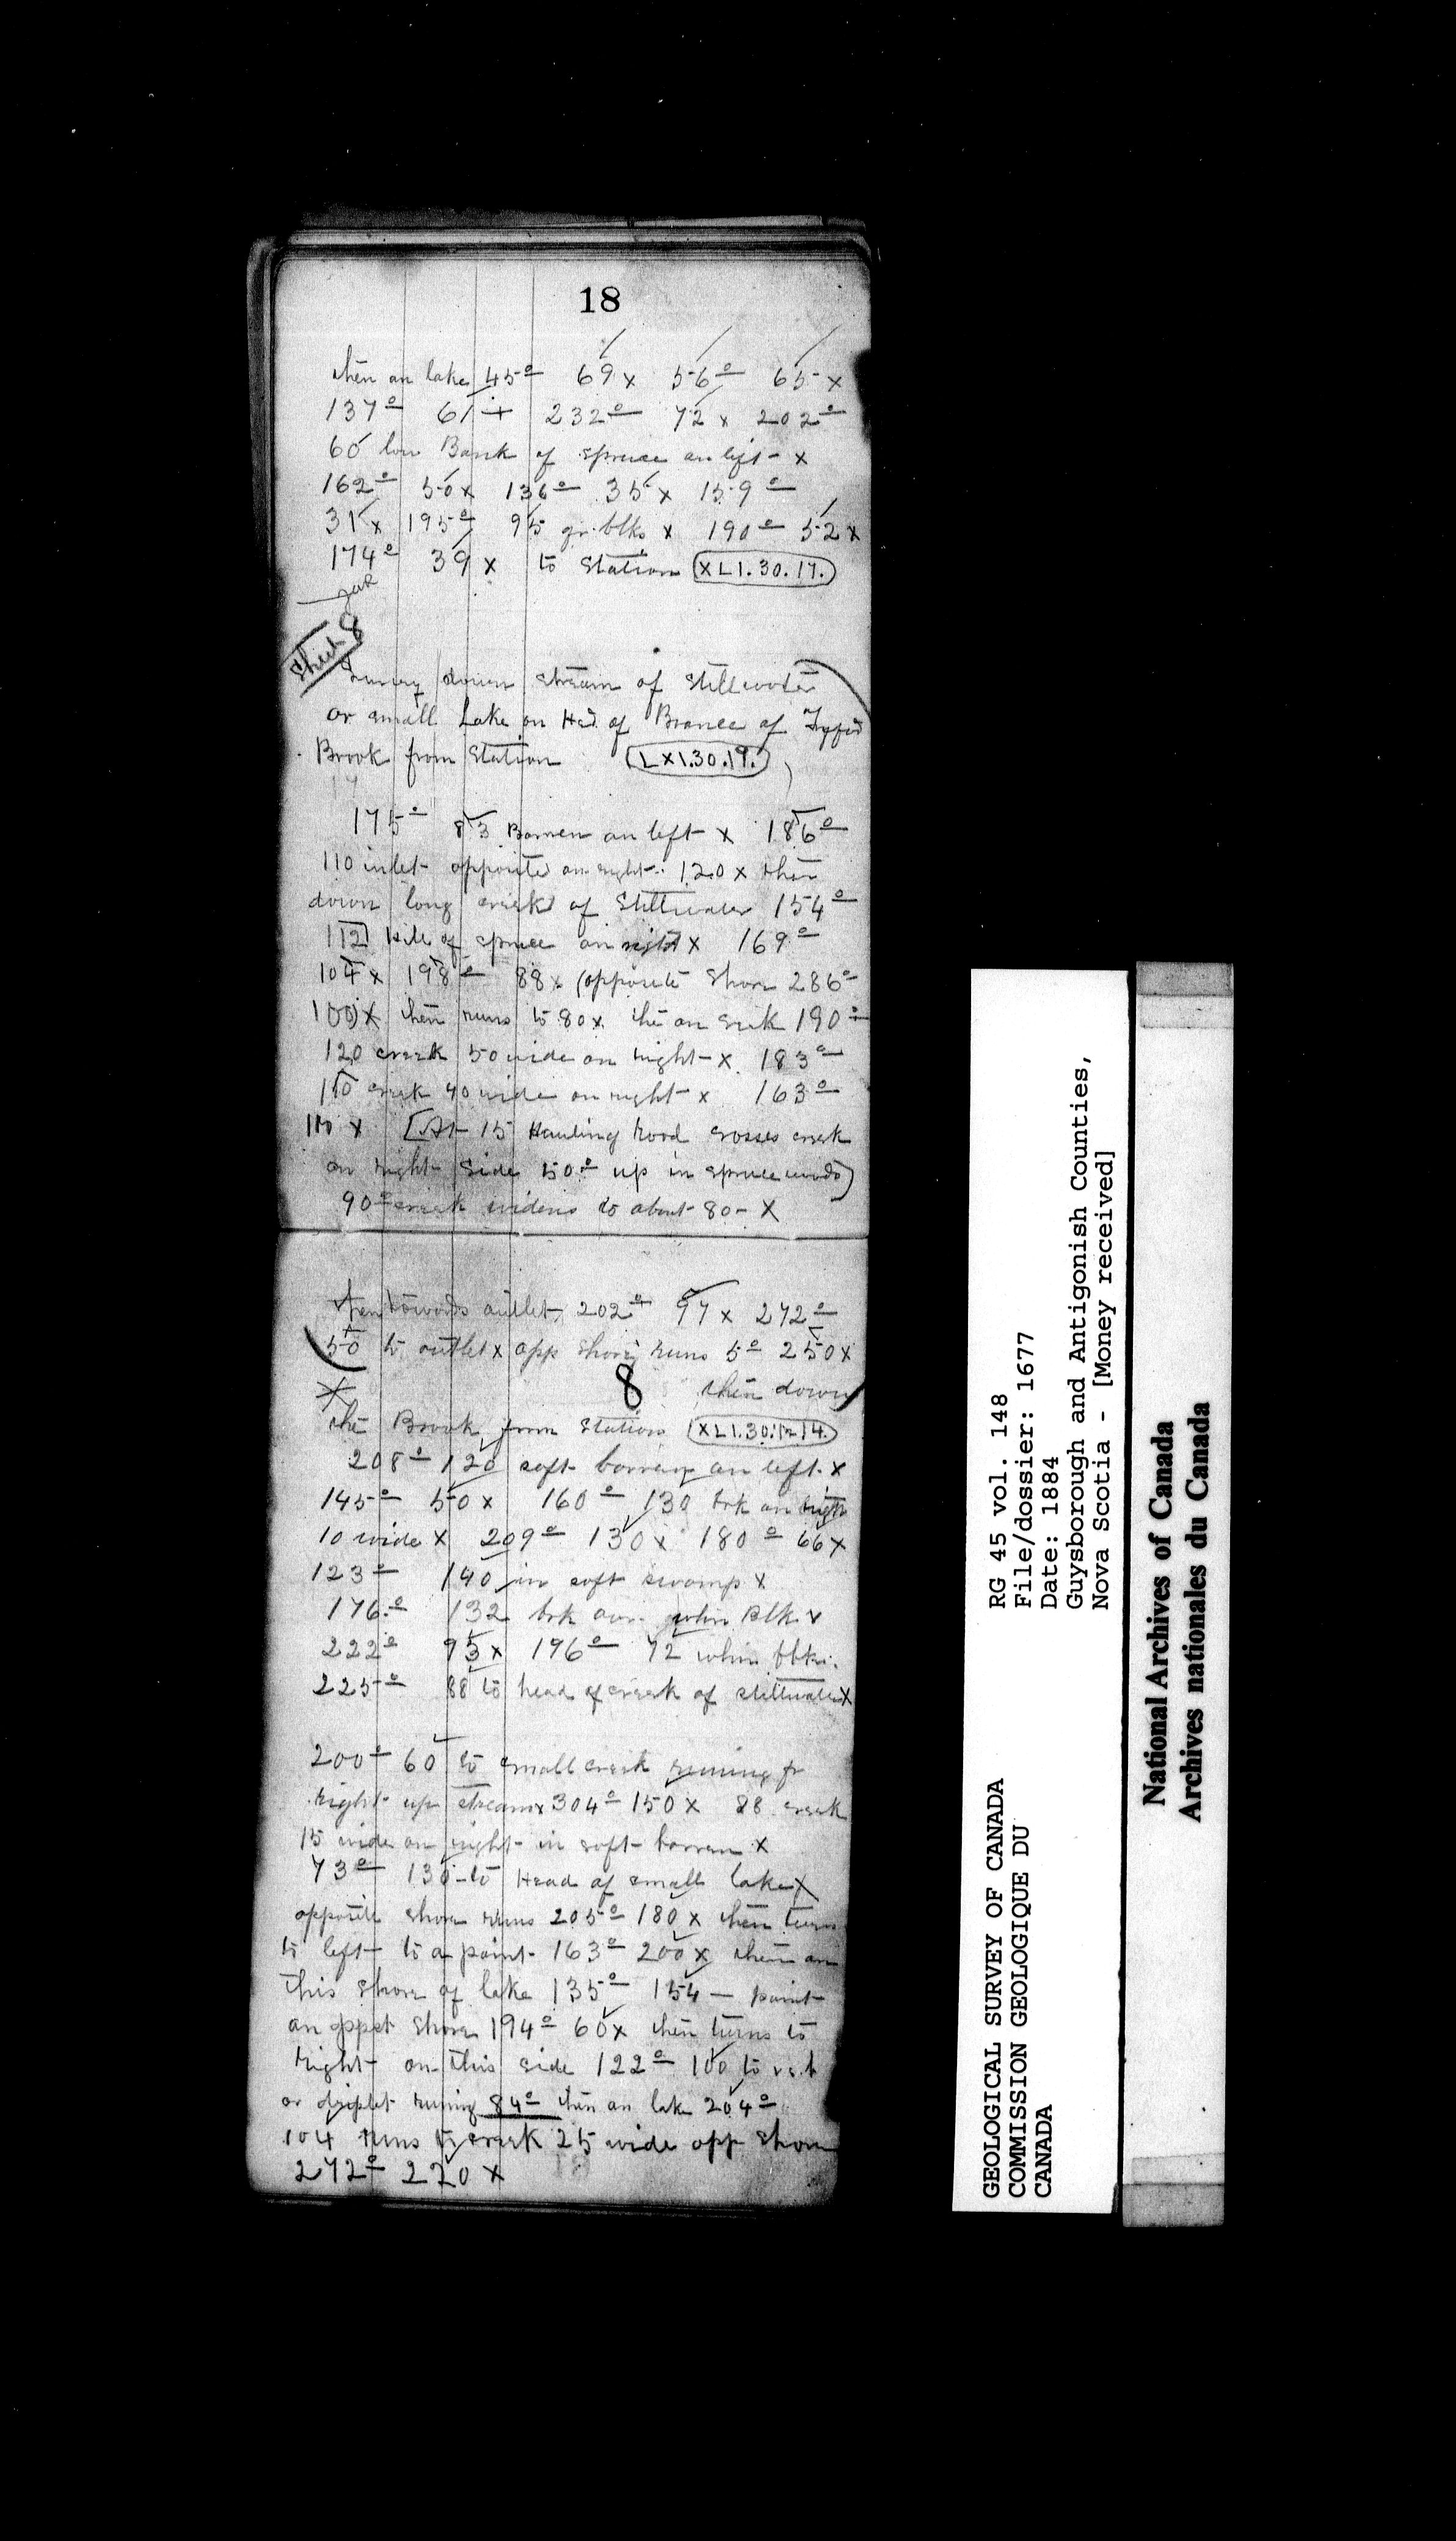 18
then on lake 45° 69 x 56° 65 x
137° 61 + 232° 72 x 202°
60 low Bank of spruce on left - x
162° 50 x 136° 35 x 159°
31 x 195° 95 gr. blks x 190° 52 x
174° 39 x to Station XLI.30.17.
Sheet 8
Survey down stream of Stillwater
or small Lake on Hd. of Brance of
Brook from Station LXI.30.19.
17
175° 83 Barren on left x 186°
110 inlet opposite on right - 120 x then
down long creek of Stillwater 154°
112 side of spruce on right x 169°
104 x 198° 88 x (opposite shore 286°
100) x then runs to 80 x the on creek 190°
120 creek 50 wide on right - x 183°
110 creek 40 wide on right x 163°
110 x [At 15 Hauling Road crosses creek
on right side 50° up in spruce woods)
90° creek widens to about 80 - x
then towards outlet, 202° 97 x 272°
50 to outlet x opp shore runs 5° 250 x
8 then down
the Brook from Station XLI.30. 14.
208° 120 soft barren on left. x
145° 50 x 160° 130 brk on right
10 wide x 209° 130 x 180° 66 x
123° 140 in soft swamp x
176° 132 brk over whin Blk. x
222° 93 x 196° 72 whin blks.
225° 88 to head of creek of stillwater x
200° 60 to small creek running fr
right up stream x 304° 150 x 88 creek
15 wide on right - in soft barren x
73° 130 - to Head of small lake x
opposite shore runs 205° 180 x then turns
to left - to a point - 163° 200 x then on
this shore of lake 135° 154 — point
on oppst shore 194° 60 x then turns to
right - on this side 122° 100 to
or driplet runing 84° then on lake 204°
104 runs to creek 25 wide opp shore
272° 220 x
RG 45 vol. 148
File/dossier: 1677
Date: 1884
Guysborough and Antigonish Counties,
Nova Scotia - [Money received]
GEOLOGICAL SURVEY OF CANADA
COMMISSION GEOLOGIQUE DU
CANADA
National Archives of Canada
Archives nationales du Canada